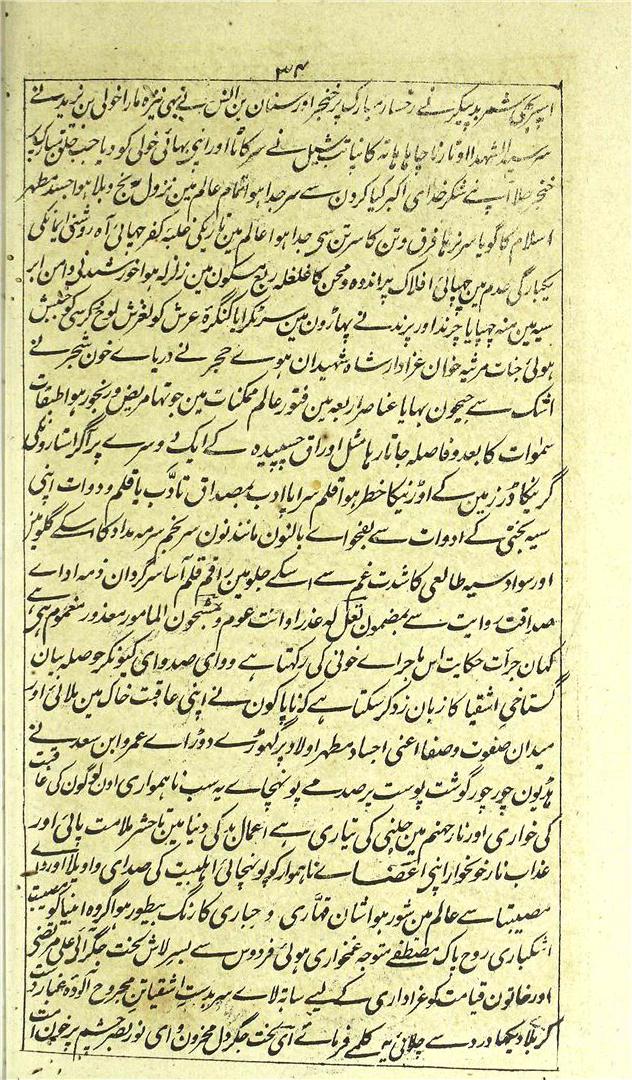 ۳۴
اسپر بھی شمر بد پیکر نے رخسار مبارک پر خنجر اور سنان بن انس نے بھی نیزہ مارا خولی بن یزید نے
سر سید الشہدا اوتارنا چاہا ہاتہ کانپا تب شبل نے سر کاٹا اور اپنی بھائی خولی کو دیا جب حلق مبارک پر
خنجر چلا آپ نے شکر خدای اکبر کیا گردن سے سر جدا ہوا تمام عالم مین نزول رنج و بلا ہوا جسد مطہر
اسلام کا گویا سر نرہا فرق و تن کا سر تن سی جدا ہوا عالم مین تاریکی غلبہ کفر چہائی آہ روشنی ایمانکی
یکبارگی عدم مین چہپائی افلاک پر اندوہ و محن کا غلغلہ ربع مسکون مین زلزلہ ہوا خورشید نی دامن ابر
سیہ مین منہ چہپایا چرند اور پرند نے پہاڑون مین سر ٹکرایا کنگرۂ عرش کو لغزش لوح و کرسی کو جنبش
ہوئی جنات مرثیہ خوان عزادار شاہ شہیدان ہوے حجر نے دریاے خون شجر نے
اشک سے جیحون بہایا عناصر اربعہ مین فتور عالم ممکنات مین جو تہا مریض و رنجور ہوا طبقات
سمٰوات کا بعد و فاصلہ جاتا رہا مثل اوراق چسپیدہ کے ایک دوسرے پر اگر استارونکی
گرنیکا ڈر زمین کے اوڑنیکا خطر ہوا قلم سراپا ادب بمصداق تادّب یا قلم و دوات اپنی
سیہ بختی کے ادوات سے بفحواے یا لنون مانند نون سر بخم سرمہ مداد کا اسکے گلو مین
اور سواد سیہ طالعی کا شدت غم سے اسکے جلو مین راقم قلم آسا سرگردان ذمہ اداے
صداقت روایت سے بمضمون لعل لہ عذر او انت تلوم و مشحون المامور معذور مغموم ہی
کمان جرات حکایت اس ماجراے خونی کی رکہتا ہے ووای صدوای کیونکر حوصلہ بیان
گستاخی اشقیا کا زبان زد کر سکتا ہے کہ ناپاکون نے اپنی عاقبت خاک مین ملائی اور
میدان صفوت و صفا اعنی اجساد مطہر اولاد پر گہوڑے دوڑاے عمرو ابن سعد نے
ہڈیون چور چور گوشت پوست پر صدمے پونہچاے یہ سب ناہمواری اون لوگون کی عاقبت
کی خواری اور نار جہنم مین جلنی کی تیاری ہے اعمال بد کی دنیا مین تا حشر ملامت پائی اور
عذاب نار خونخوار اپنی اعضاے ناہموار کو پونہچائی اہلبیت کی صدای واویلا اور وا
مصیبتا سے عالم مین شور ہوا شان قہّاری و جبّاری کا رنگ بیطور ہوا گروہ انبیا کو مصیبت
اشکباری روح پاک مصطفے متوجہ غمخواری ہوئی فردوس سے بسر لاش لخت جگر آئی علی مرتضی
اور خاتون قیامت کو عزاداری کے لیے ساتہ لاے سر بدست اشقیا تن مجروح آلودۂ غبار دشت
کربلا دیکہا درد سے چلائی یہ کلمے فرمائے ای لخت جگر دل محزون و ای نور بصر چشم پر خون